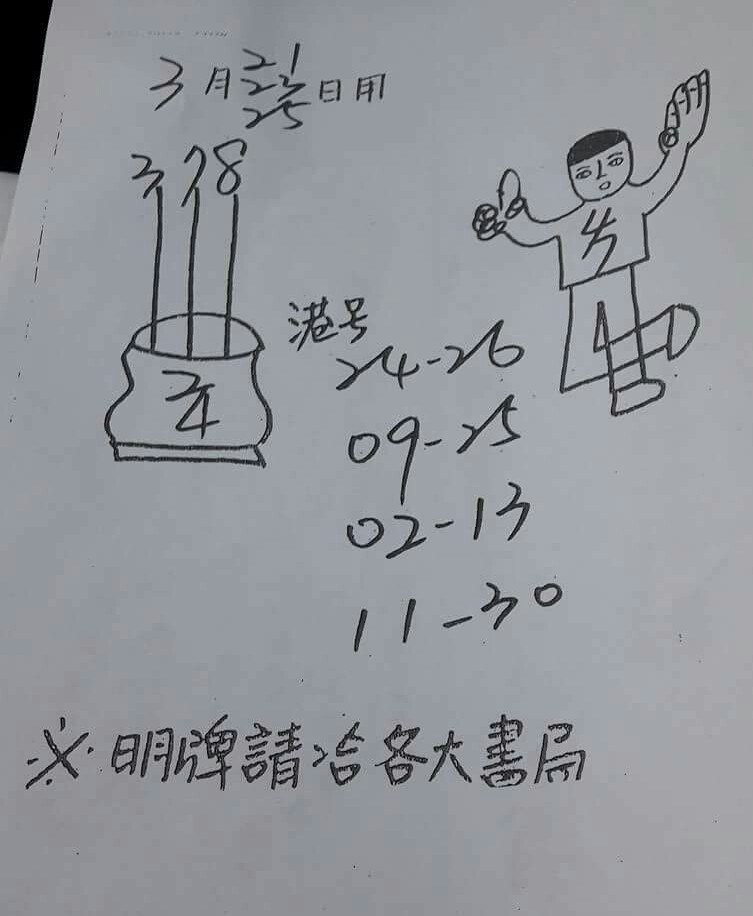 3月21日用
23
25
3 7 8
2
4
港号
24-26
09-25
02-13
11-30
※明牌請洽各大書局